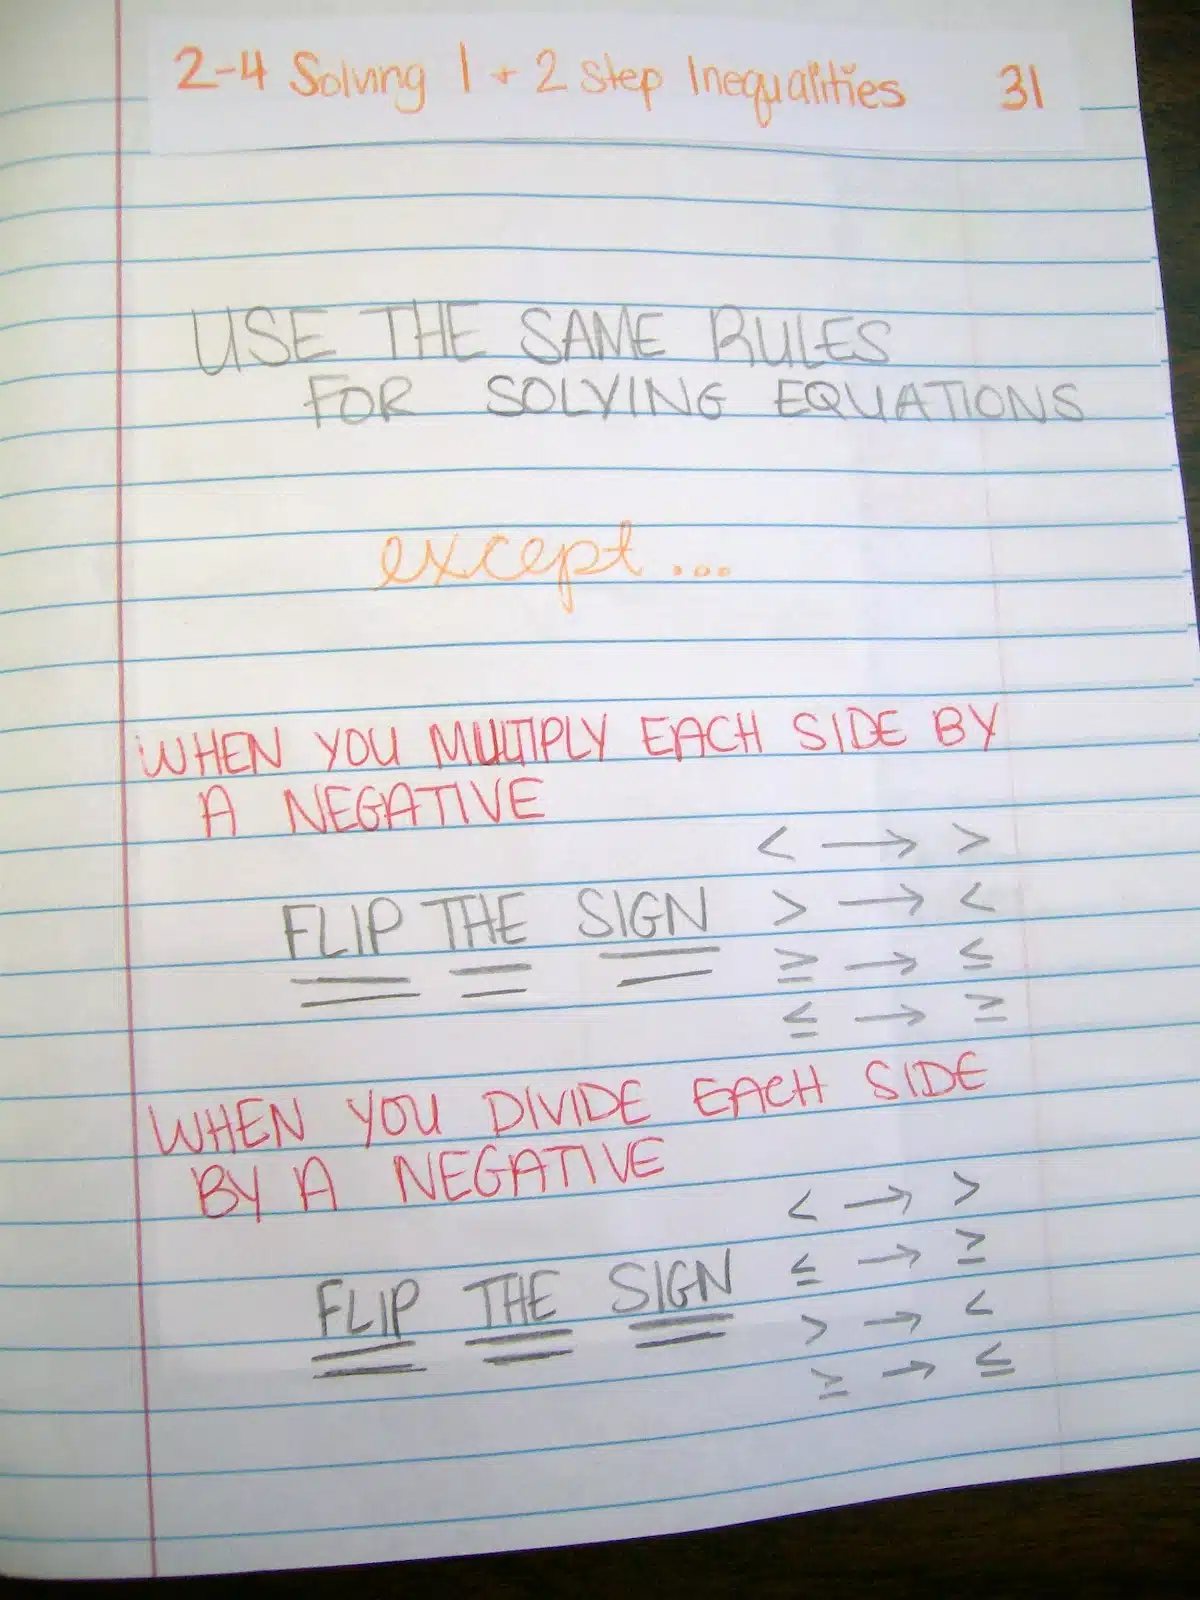 2-4 Solving 1 + 2 Step Inequalities 31
USE THE SAME RULES
FOR SOLVING EQUATIONS
except...
WHEN YOU MULTIPLY EACH SIDE BY
A NEGATIVE
< → >
FLIP THE SIGN > → <
≥ → ≤
≤ → ≥
WHEN YOU DIVIDE EACH SIDE
BY A NEGATIVE
< → >
FLIP THE SIGN ≤ → ≥
> → <
≥ → ≤